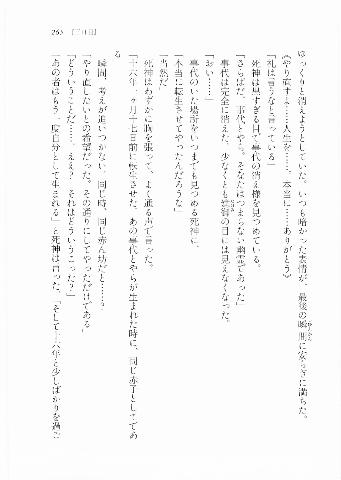 265 [三日目]
ゆっくりと消えようとしていた。いつも暗かった表情が、最後の瞬間に安らぎに満ちた。
《やり直すよ……人生を……、本当に……ありがとう》
「礼は言うなと言っている」
死神は黒すぎる目で事代の消え様を見つめている。
「さらばだ、事代とやら。そなたはつまらない幽霊であった」
事代は完全に消えた。少なくとも
の目には見えなくなった。
「おい……」
事代のいた場所をいつまでも見つめる死神に、
「本当に転生させてやったんだろうな」
「当然だ」
死神はわずかに胸を張って、よく通る声で言った。
「十六年一ヶ月十七日前に転生させた。あの事代とやらが生まれた時に、同じ赤子としてであ
る」
瞬間、考えが追いつかない。同じ時、同じ赤ん坊だと……？
「やり直したいとの希望だった。その通りにしてやっただけである」
「どういうことだ……、ええ？　それはどういうこった？」
「あの者はもう一度自分として生まれる」と死神は言った。「そして十六年と少しばかりを過ご